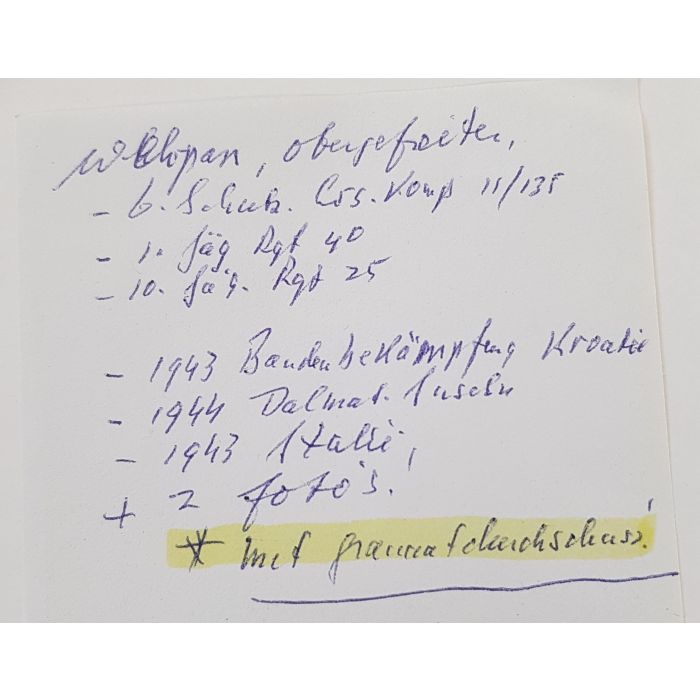 W Ehpass, obergefreiter,
- 6. Schütz. Ers. Komp 11/135
- 1. Jäg Rgt 40
- 10. Jäg. Rgt 25
- 1943 Bandenbekämpfung Kroatië
- 1944 Dalmat. Inseln
- 1943 Italië,
+ 2 foto's!
* met granaatdurchschuss!